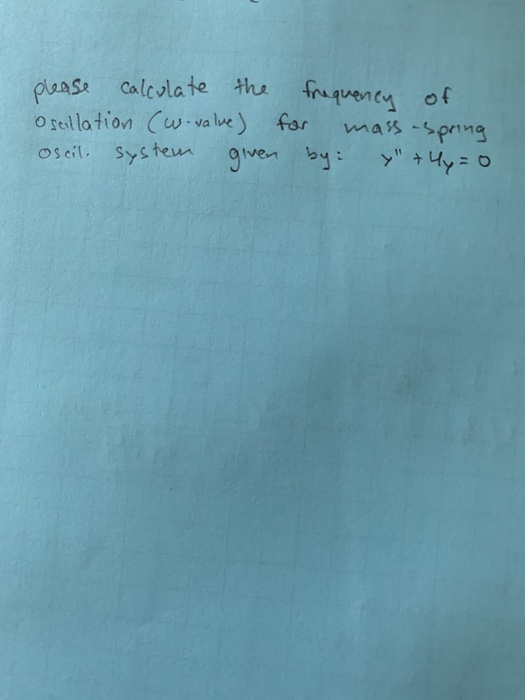 please calculate the frequency of
oscillation (w-value) for mass-spring
oscil. system given by: y" + 4y = 0